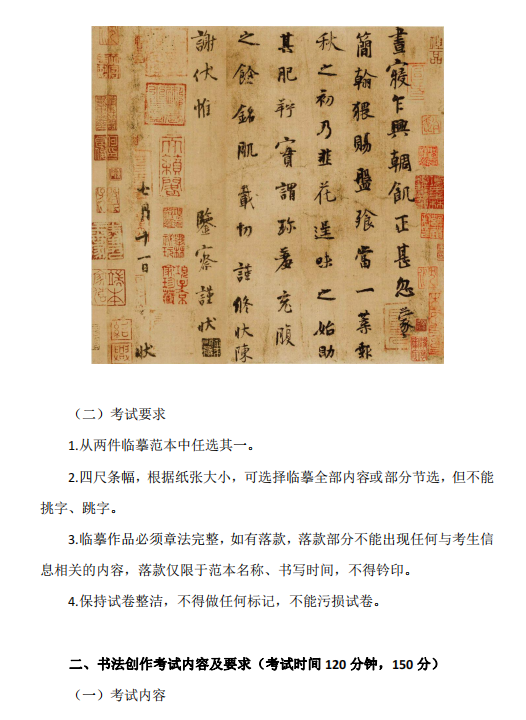 晝寢乍興輖飢正甚忽蒙
簡翰猥賜盤飧當一葉報
秋之初乃韭花逞味之始助
其肥羜實謂珍羞充腹
之餘銘肌載切謹修狀陳
謝伏惟 鑒察謹狀
七月十一日 狀
（二）考试要求
1.从两件临摹范本中任选其一。
2.四尺条幅，根据纸张大小，可选择临摹全部内容或部分节选，但不能
挑字、跳字。
3.临摹作品必须章法完整，如有落款，落款部分不能出现任何与考生信
息相关的内容，落款仅限于范本名称、书写时间，不得钤印。
4.保持试卷整洁，不得做任何标记，不能污损试卷。
二、书法创作考试内容及要求（考试时间 120 分钟，150 分）
（一）考试内容